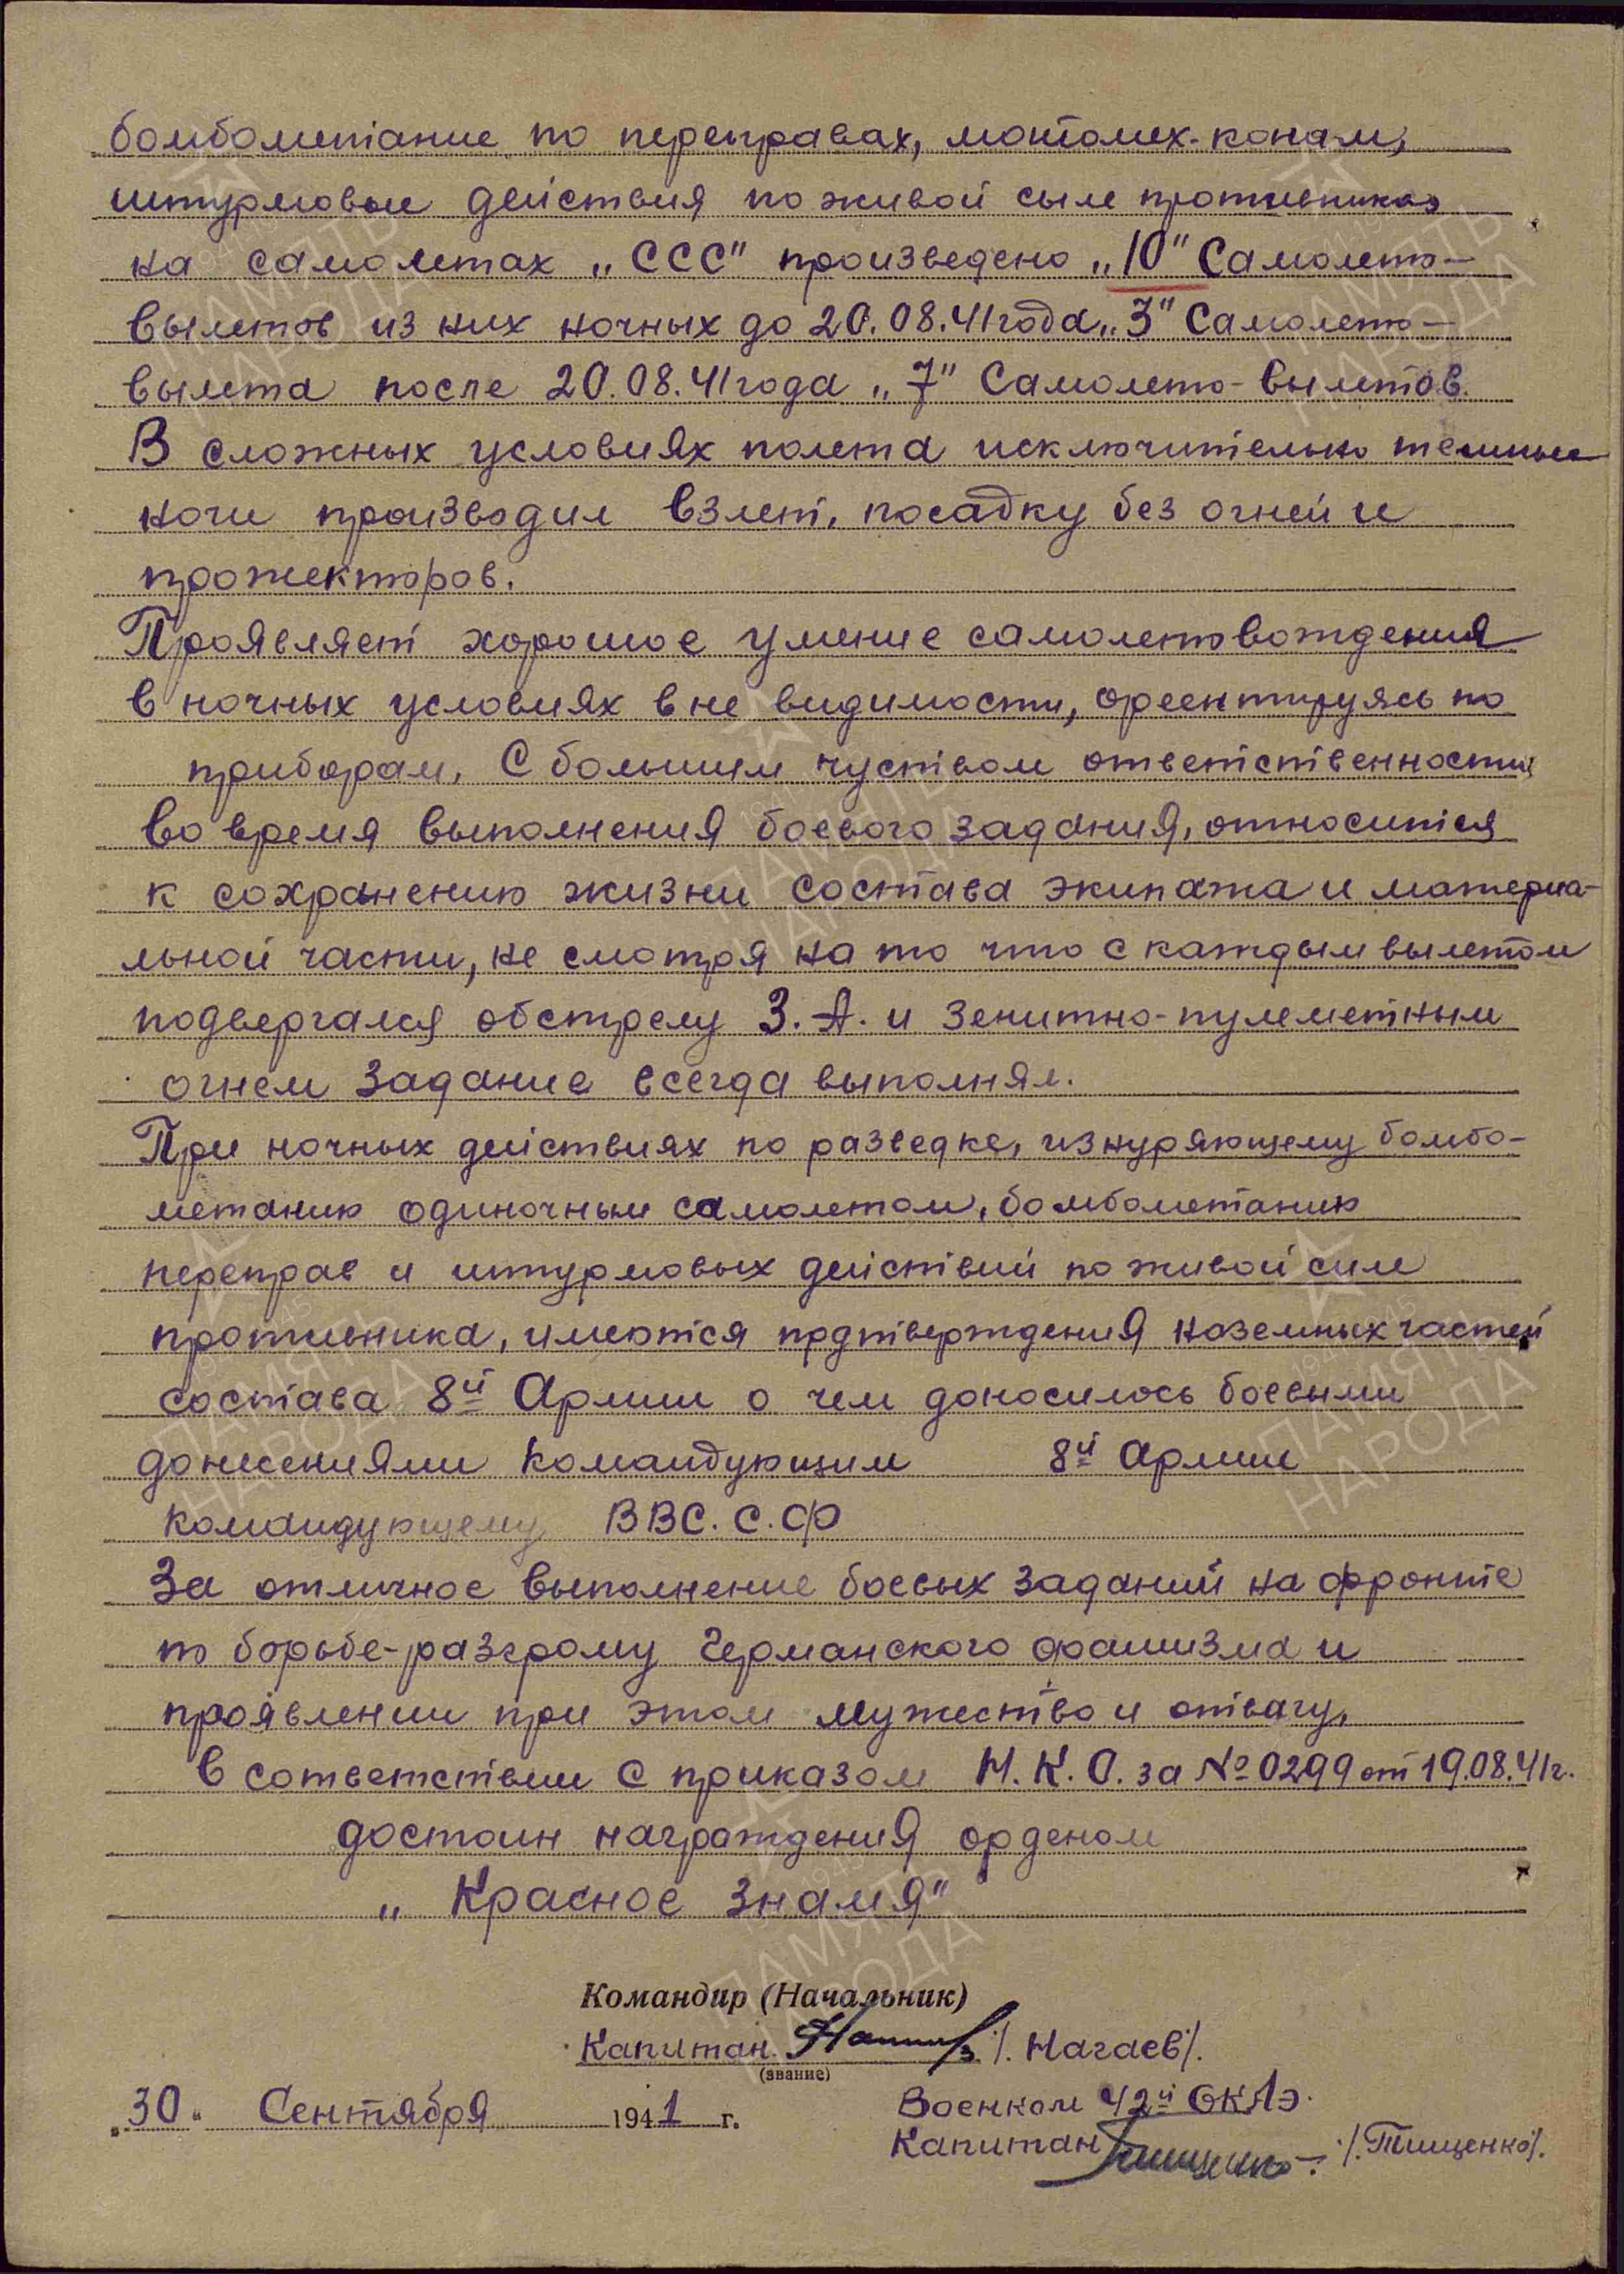 бомбометание по переправах, мотомех-конам,
штурмовые действия по живой сыле противника,
на самолетах „ССС" произведено „10" Самолето-
вылетов из них ночных до 20.08.41 года „3" Самолето-
вылета после 20.08.41 года „7" Самолето-вылетов.
В сложных условиях полета исключительно темные
ночи производил взлет, посадку без огней и
прожекторов.
Проявляет хорошое умение самолетовождения
в ночных условиях вне видимости, ореентируясь по
приборам, С большим чуством ответственности
во время выполнения боевого задания, относится
к сохранению жизни состава экипажа и материа-
льной части, не смотря на то что с каждым вылетом
подвергался обстрелу З.А. и зенитно-пулеметным
огнем задание всегда выполнял.
При ночных действиях по разведке, изнуряющему бомбо-
метанию одиночным самолетом, бомбометанию
переправ и штурмовых действий по живой силе
противника, имеются подтверждения наземных частей
состава 8й Армии о чем доносилось боевыми
донесениями Командующим 8й Армии
Командующему ВВС. С. Ф
За отличное выполнение боевых заданий на фронте
по борьбе-разгрому Германского фашизма и
проявлении при этом мужество и отвагу,
в сответствии с приказом Н.К.О. за № 0299 от 19.08.41г.
достоин награждения орденом
„Красное Знамя"
Командир (Начальник)
Капитан /. Нагаев/.
(звание)
„30" Сентября 1941 г.
Военком 42й ОКАЭ.
Капитан Тищенко /.Тищенко/.
ПАМЯТЬ
НАРОДА